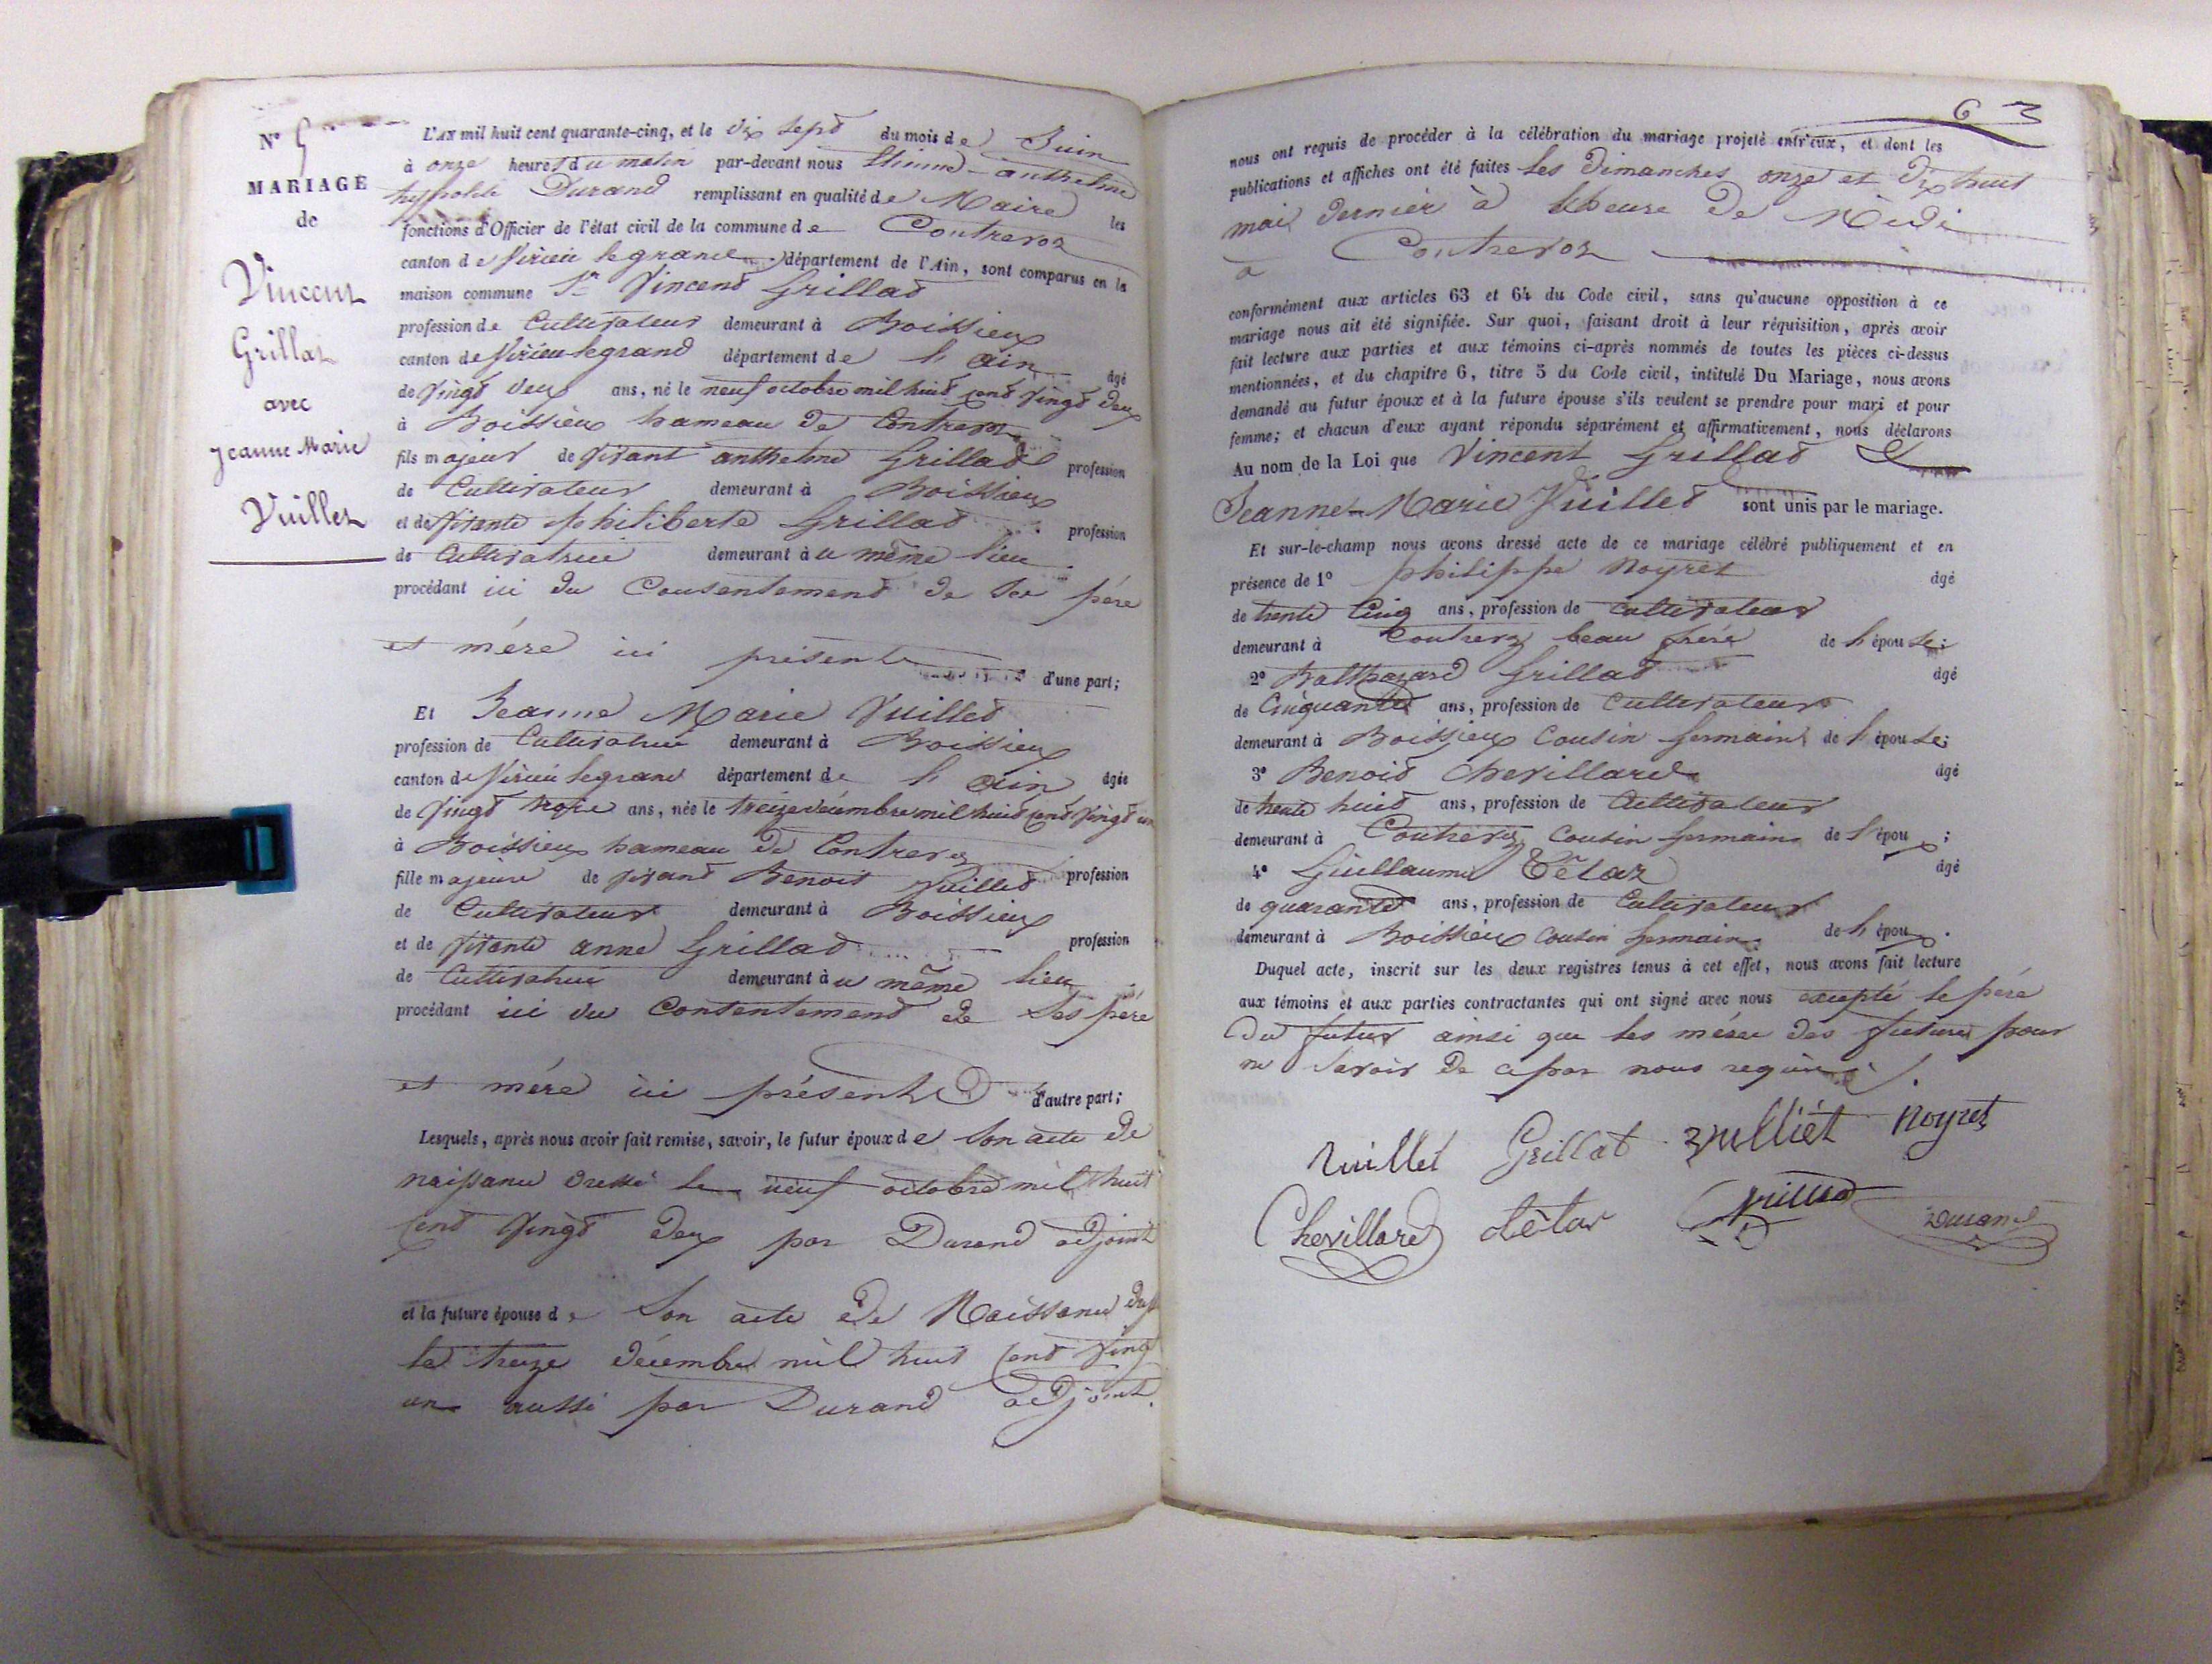 N° 5
MARIAGE
de
Vincent
Grillat
avec
Jeanne Marie
Vuillet
L'AN mil huit cent quarante-cinq, et le dix sept du mois de Juin
à onze heures du matin par-devant nous Etienne-anthelme
hypolite Durand remplissant en qualité de Maire les
fonctions d'Officier de l'état civil de la commune de Contrevoz
canton de Virieu legrand département de l'Ain, sont comparus en la
maison commune Sr Vincent Grillat
profession de Cultivateur demeurant à Boissieux
canton de Virieu-legrand département de l'ain âgé
de vingt deux ans, né le neuf octobre mil huit cent vingt deux
à Boissieux hameau de Contrevoz
fils majeur de vivant anthelme Grillat profession
de Cultivateur demeurant à Boissieux
et de vivante philiberte Grillat profession
de Cultivatrice demeurant à u même lieu
procédant ici du Consentement de ses père
et mère ici présents d'une part;
Et Jeanne Marie Vuillet
profession de Cultivatrice demeurant à Boissieux
canton de Virieu legrand département de l'ain âgée
de vingt trois ans, née le treize décembre mil huit cent vingt un
à Boissieux hameau de Contrevoz
fille majeure de vivant Benoit Vuillet profession
de Cultivateur demeurant à Boissieux
et de vivante anne Grillat profession
de Cultivatrice demeurant à u même lieu
procédant ici du Consentement de ses père
et mère ici présents d'autre part;
Lesquels, après nous avoir fait remise, savoir, le futur époux de son acte de
naissance dressé le neuf octobre mil huit
cent vingt deux par Durand adjoint
et la future épouse de son acte de Naissance
le treize décembre mil huit cent vingt
un aussi par Durand adjoint.
63
nous ont requis de procéder à la célébration du mariage projeté entr'eux, et dont les
publications et affiches ont été faites les dimanches onze et dix huit
mai dernier à lheure de Midi
à Contrevoz
conformément aux articles 63 et 64 du Code civil, sans qu'aucune opposition à ce
mariage nous ait été signifiée. Sur quoi, faisant droit à leur réquisition, après avoir
fait lecture aux parties et aux témoins ci-après nommés de toutes les pièces ci-dessus
mentionnées, et du chapitre 6, titre 5 du Code civil, intitulé Du Mariage, nous avons
demandé au futur époux et à la future épouse s'ils veulent se prendre pour mari et pour
femme; et chacun d'eux ayant répondu séparément et affirmativement, nous déclarons
Au nom de la Loi que Vincent Grillat &
Jeanne-Marie Vuillet sont unis par le mariage.
Et sur-le-champ nous avons dressé acte de ce mariage célébré publiquement et en
présence de 1° philippe Noyret âgé
de trente cinq ans, profession de cultivateur
demeurant à Contrevoz beau frère de l'épouse;
2° Balthazard Grillat âgé
de Cinquante ans, profession de Cultivateur
demeurant à Boissieux Cousin Germain de l'épouse;
3° Benoit Chevillard âgé
de trente huit ans, profession de Cultivateur
demeurant à Contrevoz Cousin Germain de l'époux;
4° Guillaume Tétaz âgé
de quarante ans, profession de Cultivateur
demeurant à Boissieux Cousin Germain de l'époux.
Duquel acte, inscrit sur les deux registres tenus à cet effet, nous avons fait lecture
aux témoins et aux parties contractantes qui ont signé avec nous excepté le père
du futur ainsi que les mères des futurs pour
ne savoir de ce par nous requis.
Vuillet Grillat vulliét Noyret
Chevillard tétaz Durand